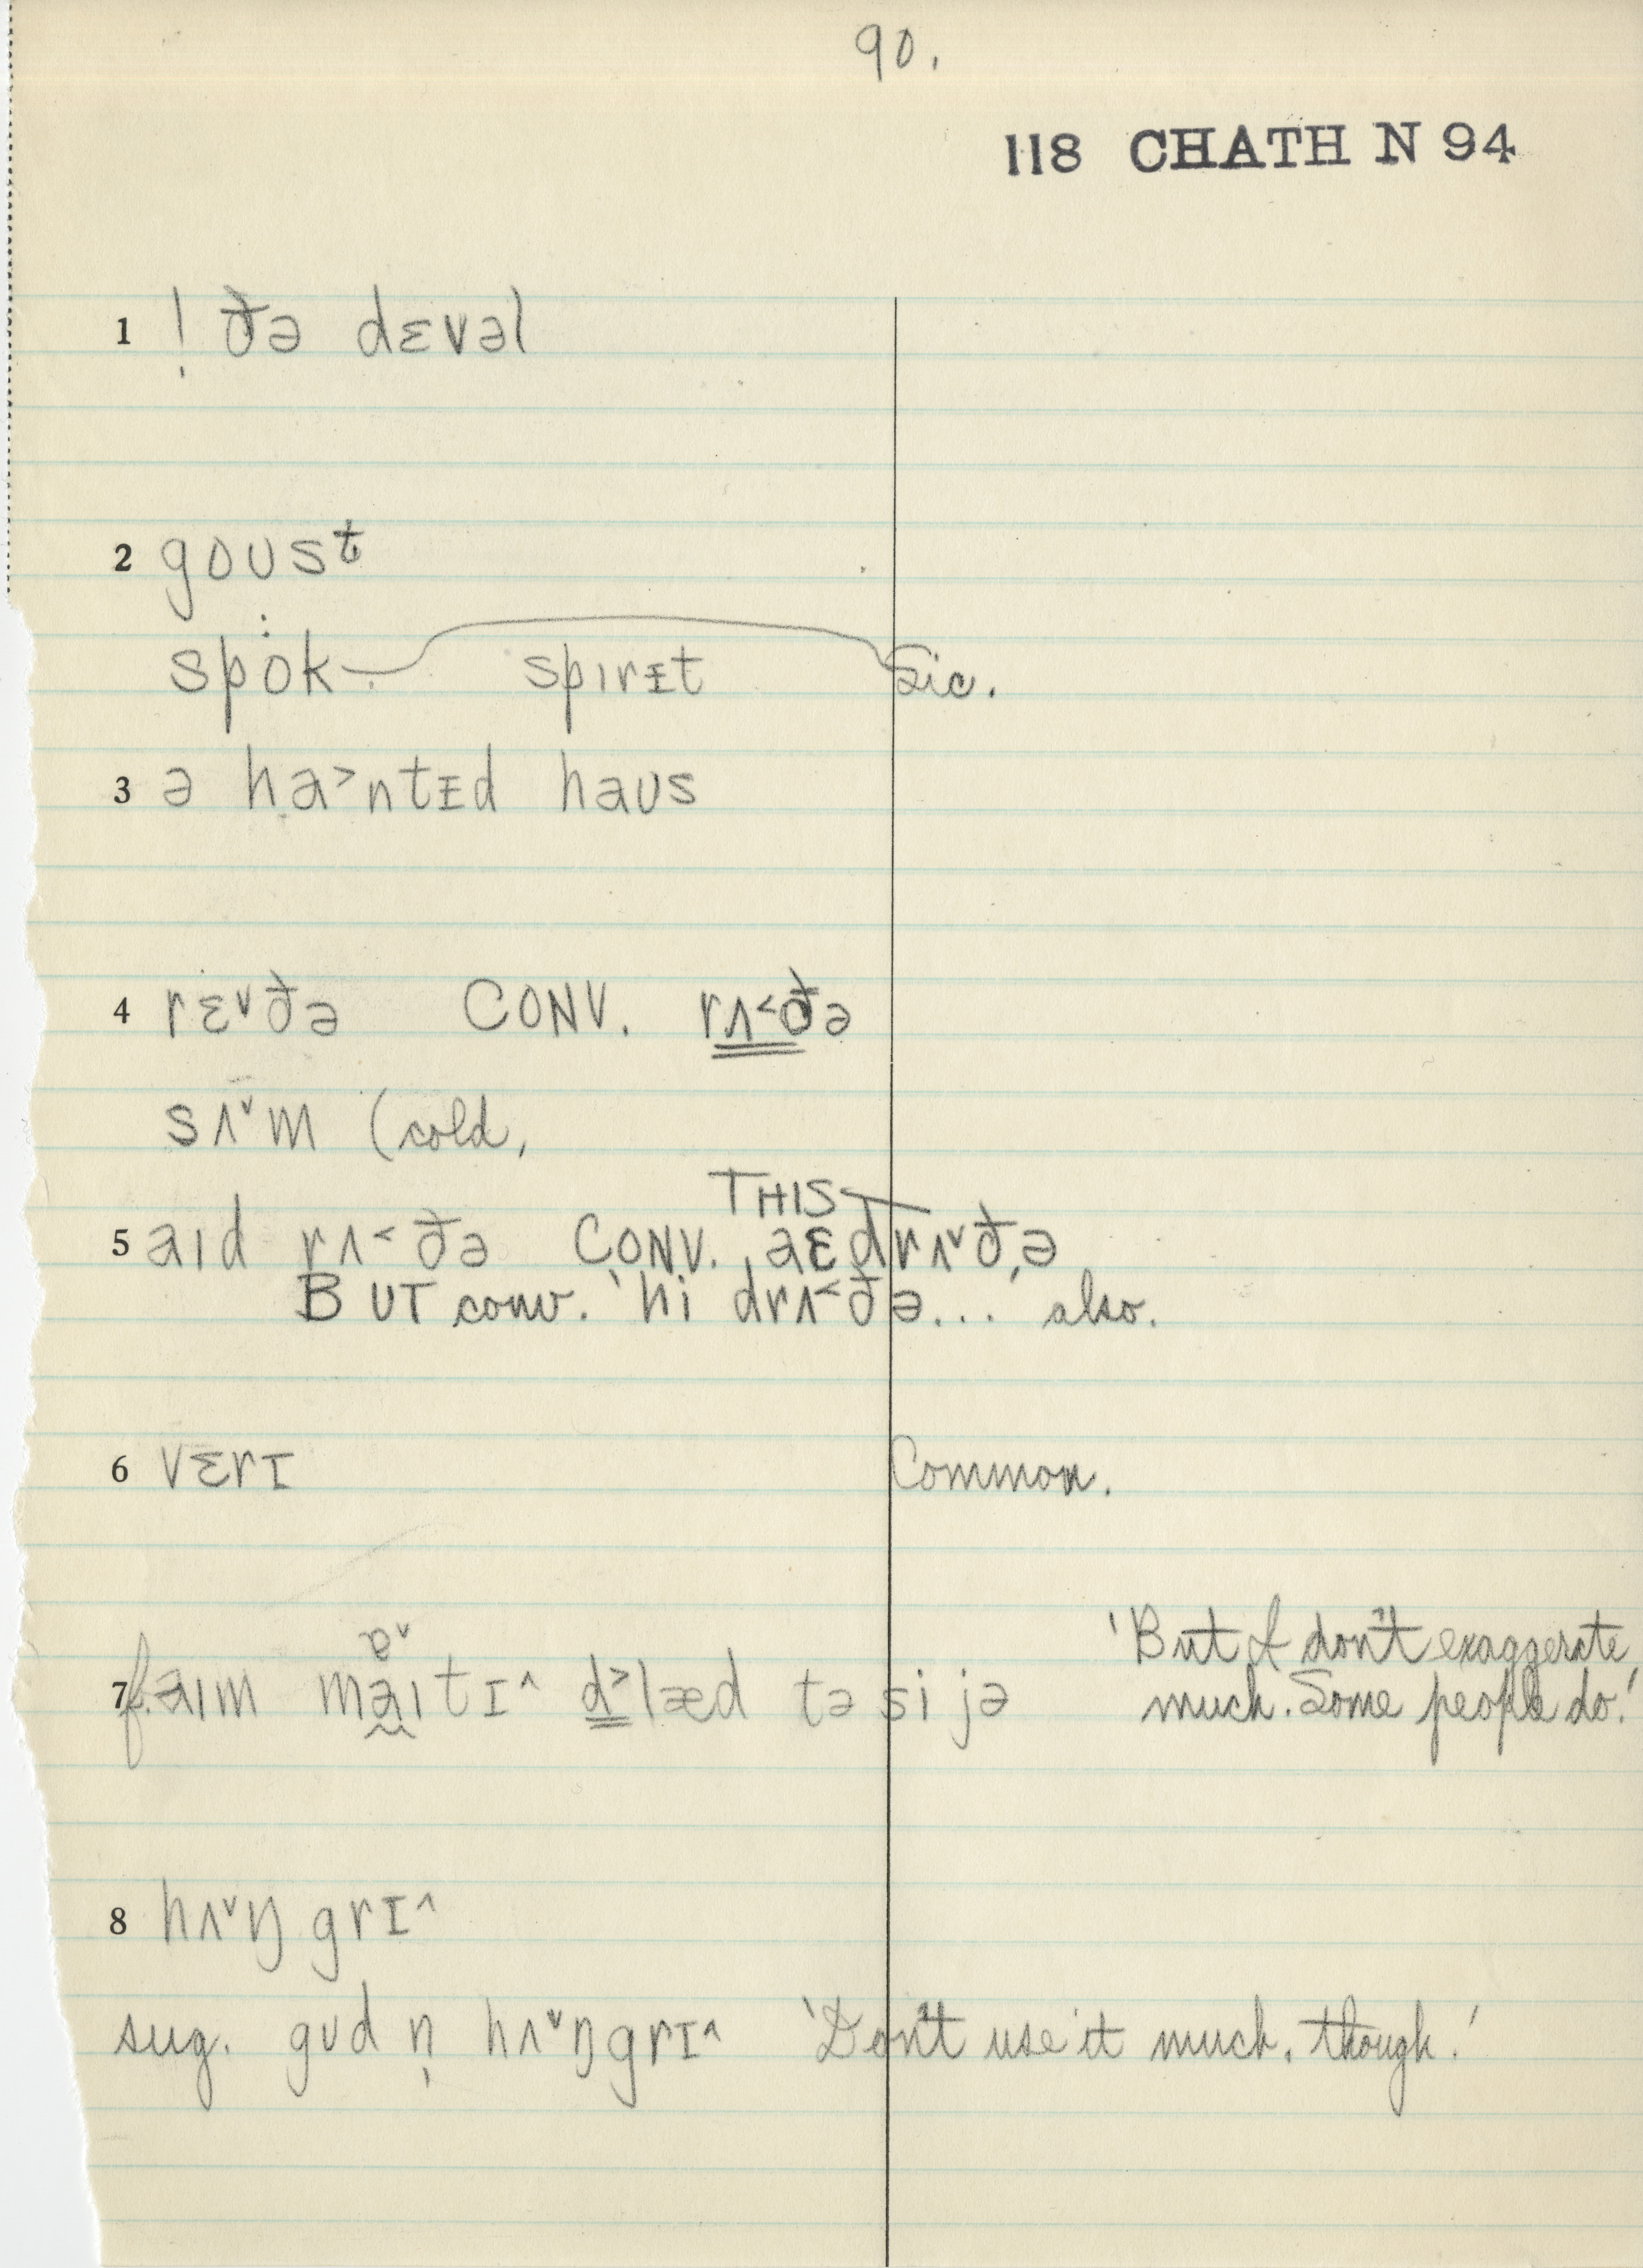 90.
118 CHATH N 94
1 ! ðə dɛvəl
2 goʊsᵗ
spȯk spɪrɪt Sic.
3 ə ha˃ntɪd haʊs
4 rɛ˅ðə CONV. rʌ˂ðə
sʌ˅m (cold,
THIS
5 aɪd rʌ˂ðə CONV. 'aɛdrʌ˅ðə'
BUT conv. 'hi drʌ˂ðə... also.
6 vɛrɪ Common.
7 f. aɪm maɪtɪ^ d˃læd tə si jə 'But I don't exaggerate
much. Some people do.'
8 hʌ˅ŋgrɪ^
sug. gʊd n̩ hʌ˅ŋgrɪ^ 'Don't use it much, though.'